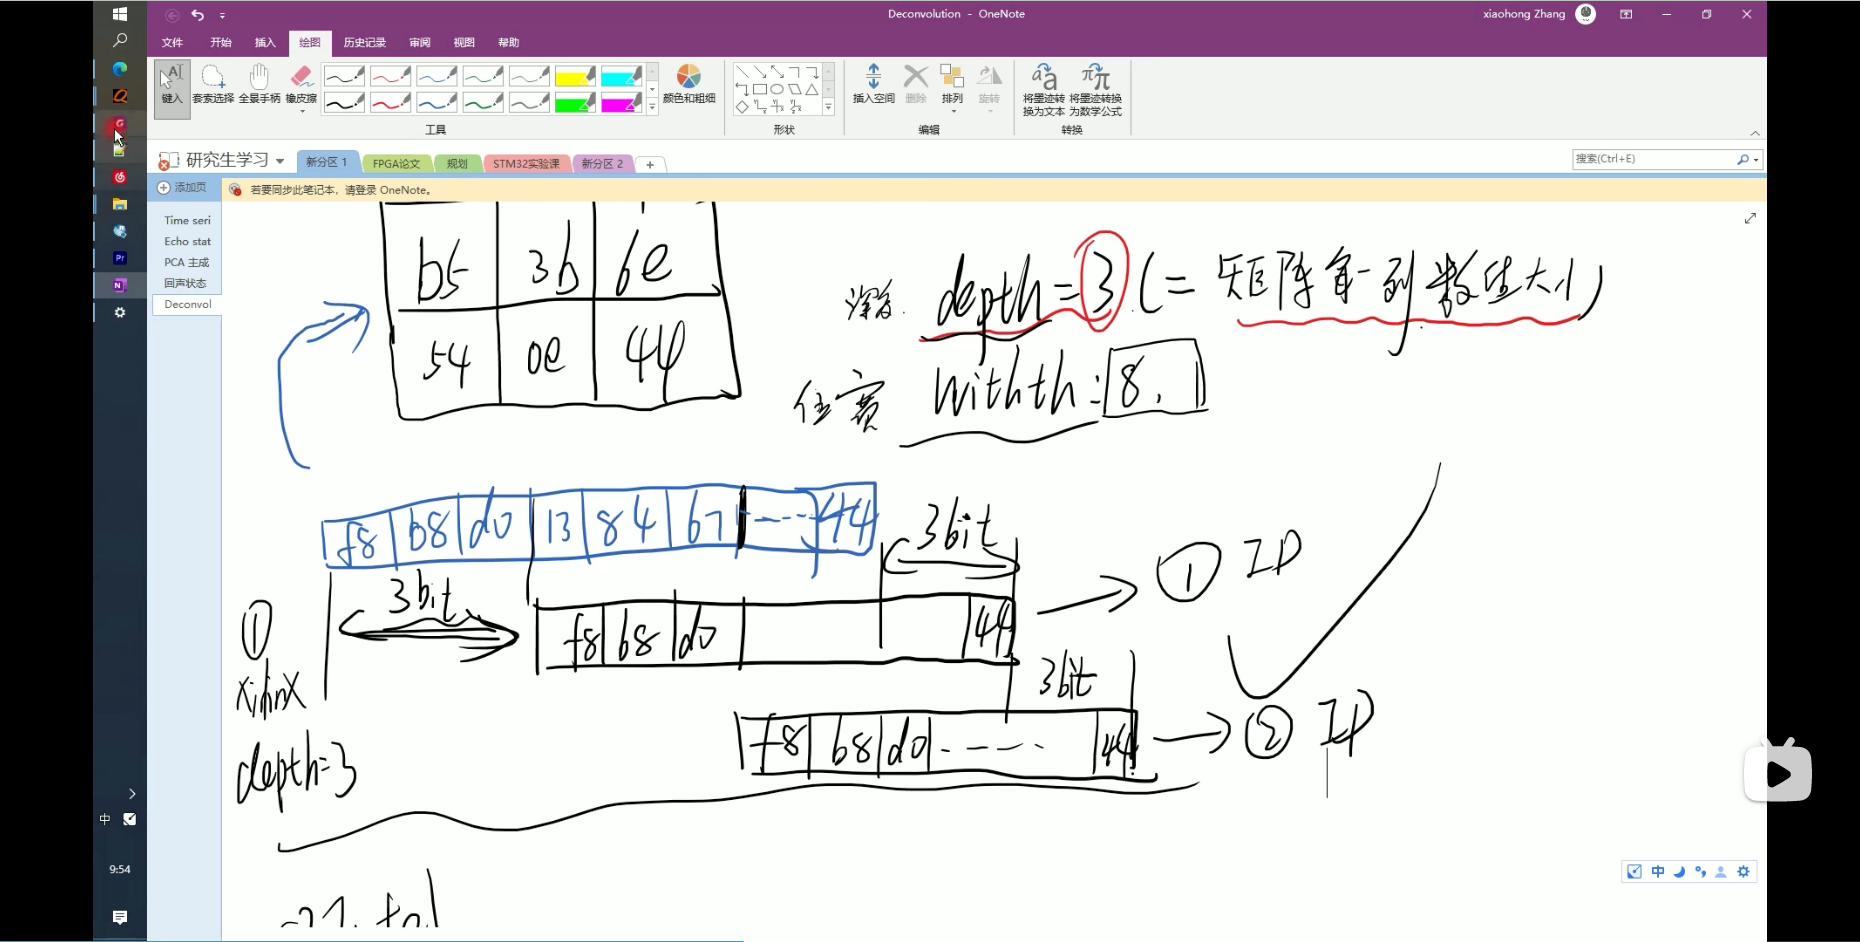 Deconvolution - OneNote
xiaohong Zhang
文件 开始 插入 绘图 历史记录 审阅 视图 帮助
键入 套索选择 全景手柄 橡皮擦
颜色和粗细
插入空间 删除 排列 旋转
将墨迹转换为文本 将墨迹转换为数学公式
工具 形状 编辑 转换
研究生学习 新分区 1 FPGA论文 规划 STM32实验课 新分区 2
搜索(Ctrl+E)
添加页
若要同步此笔记本，请登录 OneNote。
Time seri
Echo stat
PCA 主成
回声状态
Deconvol
b5 3b 6e
54 0e 44
depth=3 (=矩阵每一列数值大小)
位宽 Withth: 8.
f8 b8 d0 13 84 b7 ---- 44
3bit
3bit
① IP
①
f8 b8 d0 44
xilinx
3bit
f8 b8 d0 ---- 44
② IP
depth=3
中
9:54
中